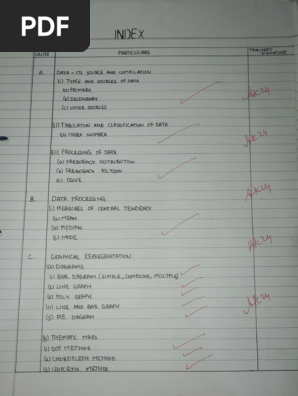 PDF
INDEX
UNITS PARTICULARS TEACHERS SIGNATURE
A. DATA - ITS SOURCE AND COMPILATION
(i) TYPES AND SOURCES OF DATA
(a) PRIMARY
(b) SECONDARY
(c) OTHER SOURCES
(ii) TABULATION AND CLASSIFICATION OF DATA
(a) INDEX NUMBER
(iii) PROCESSING OF DATA
(a) FREQUENCY DISTRIBUTION
(b) FREQUENCY POLYGON
(c) OGIVE
B. DATA PROCESSING
(i) MEASURES OF CENTRAL TENDENCY
(a) MEAN
(b) MEDIAN
(c) MODE
C. GRAPHICAL REPRESENTATION
(a) DIAGRAMS
(i) BAR DIAGRAM (SIMPLE, COMPOUND, MULTIPLE)
LINE GRAPH
POLY GRAPH
LINE AND BAR GRAPH
PIE DIAGRAM
(b) THEMATIC MAPS
(i) DOT METHOD
CHOROPLETH METHOD
ISOPLETH METHOD